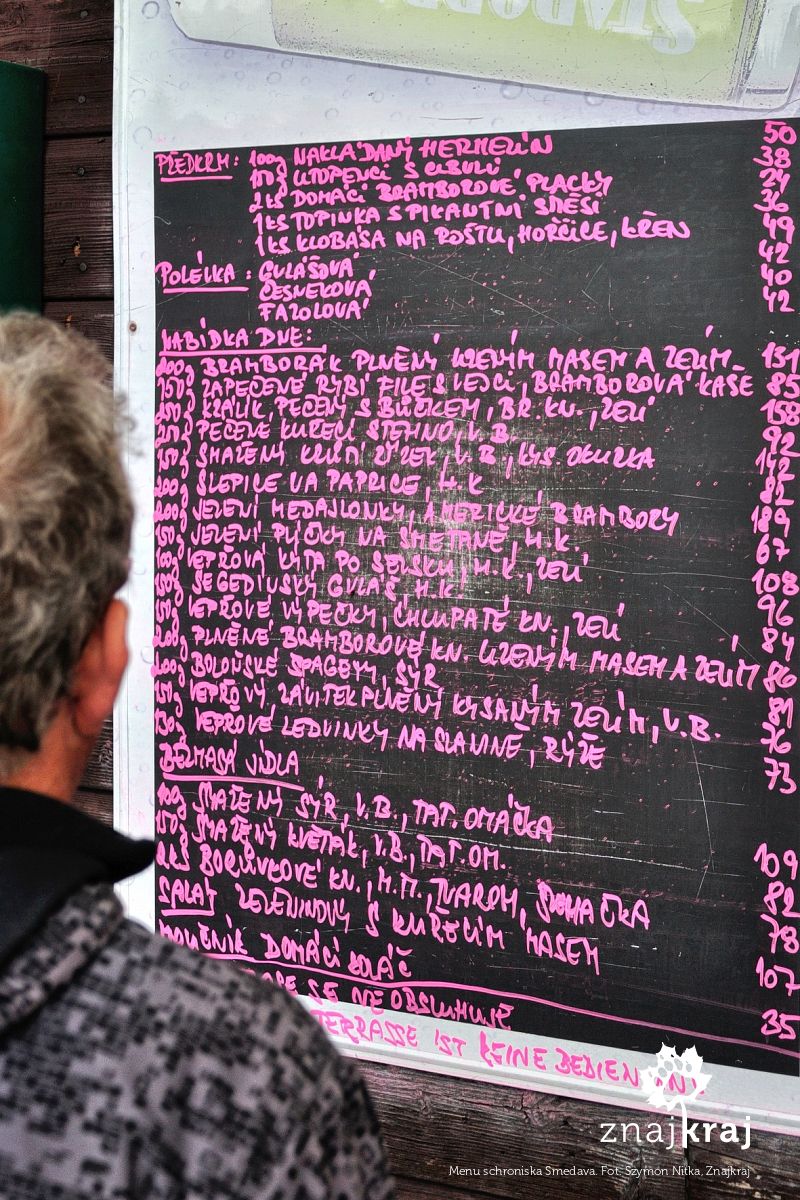 STAROPR
PŘEDKRM: 100g NAKLÁDANÝ HERMELÍN 50
100g UTOPENCI S CIBULÍ 38
2KS DOMÁCÍ BRAMBOROVÉ PLACKY 24
1KS TOPINKA S PIKANTNÍ SMĚSÍ 36
1KS KLOBÁSA NA ROŠTU, HOŘČICE, KŘEN 49
POLÉVKA: GULÁŠOVÁ 42
ČESNEKOVÁ 40
FAZOLOVÁ 42
NABÍDKA DNE:
200g BRAMBORÁK PLNĚNÝ UZENÝM MASEM A ZELÍM 131
250g ZAPEČENÉ RYBÍ FILÉ S VEJCI, BRAMBOROVÁ KAŠE 85
250g KRÁLÍK PEČENÝ S BŮČKEM, BR. KN., ZELÍ 158
250g PEČENÉ KUŘECÍ STEHNO, V.B. 92
150g SMAŽENÝ ŘÍZEK, V.B., KYS. OKURKA 142
200g SLEPICE NA PAPRICE, H.K 82
200g JELENÍ MEDAJLONKY, AMERICKÉ BRAMBORY 189
150g JELENÍ PLÍČKY NA SMETANĚ, H.K. 67
100g VEPŘOVÁ KÝTA PO SELSKU, H.K., ZELÍ 108
150g SEGEDÍNSKÝ GULÁŠ, H.K. 96
150g VEPŘOVÉ VÝPEČKY, CHLUPATÉ KN., ZELÍ 84
200g PLNĚNÉ BRAMBOROVÉ KN. UZENÝM MASEM A ZELÍM 86
200g BOLOŇSKÉ ŠPAGETY, SÝR 81
150g VEPŘOVÝ ZÁVITEK PLNĚNÝ KYSANÝM ZELÍM, V.B. 76
130g VEPŘOVÉ LEDVINKY NA SLANINĚ, RÝŽE 73
BEZMASÁ JÍDLA
100g SMAŽENÝ SÝR, V.B., TAT. OMÁČKA 109
150g SMAŽENÝ KVĚTÁK, V.B., TAT. OM. 82
2KS BORŮVKOVÉ KN., M.M., TVAROH, ŠLEHAČKA 78
SALÁT ZELENINOVÝ S KUŘECÍM MASEM 107
MOUČNÍK DOMÁCÍ KOLÁČ 35
SE NE OBSLUHUJE
TERRASSE IST KEINE BEDIENUNG!
znajkraj
Menu schroniska Smedava. Fot. Szymon Nitka, Znajkraj